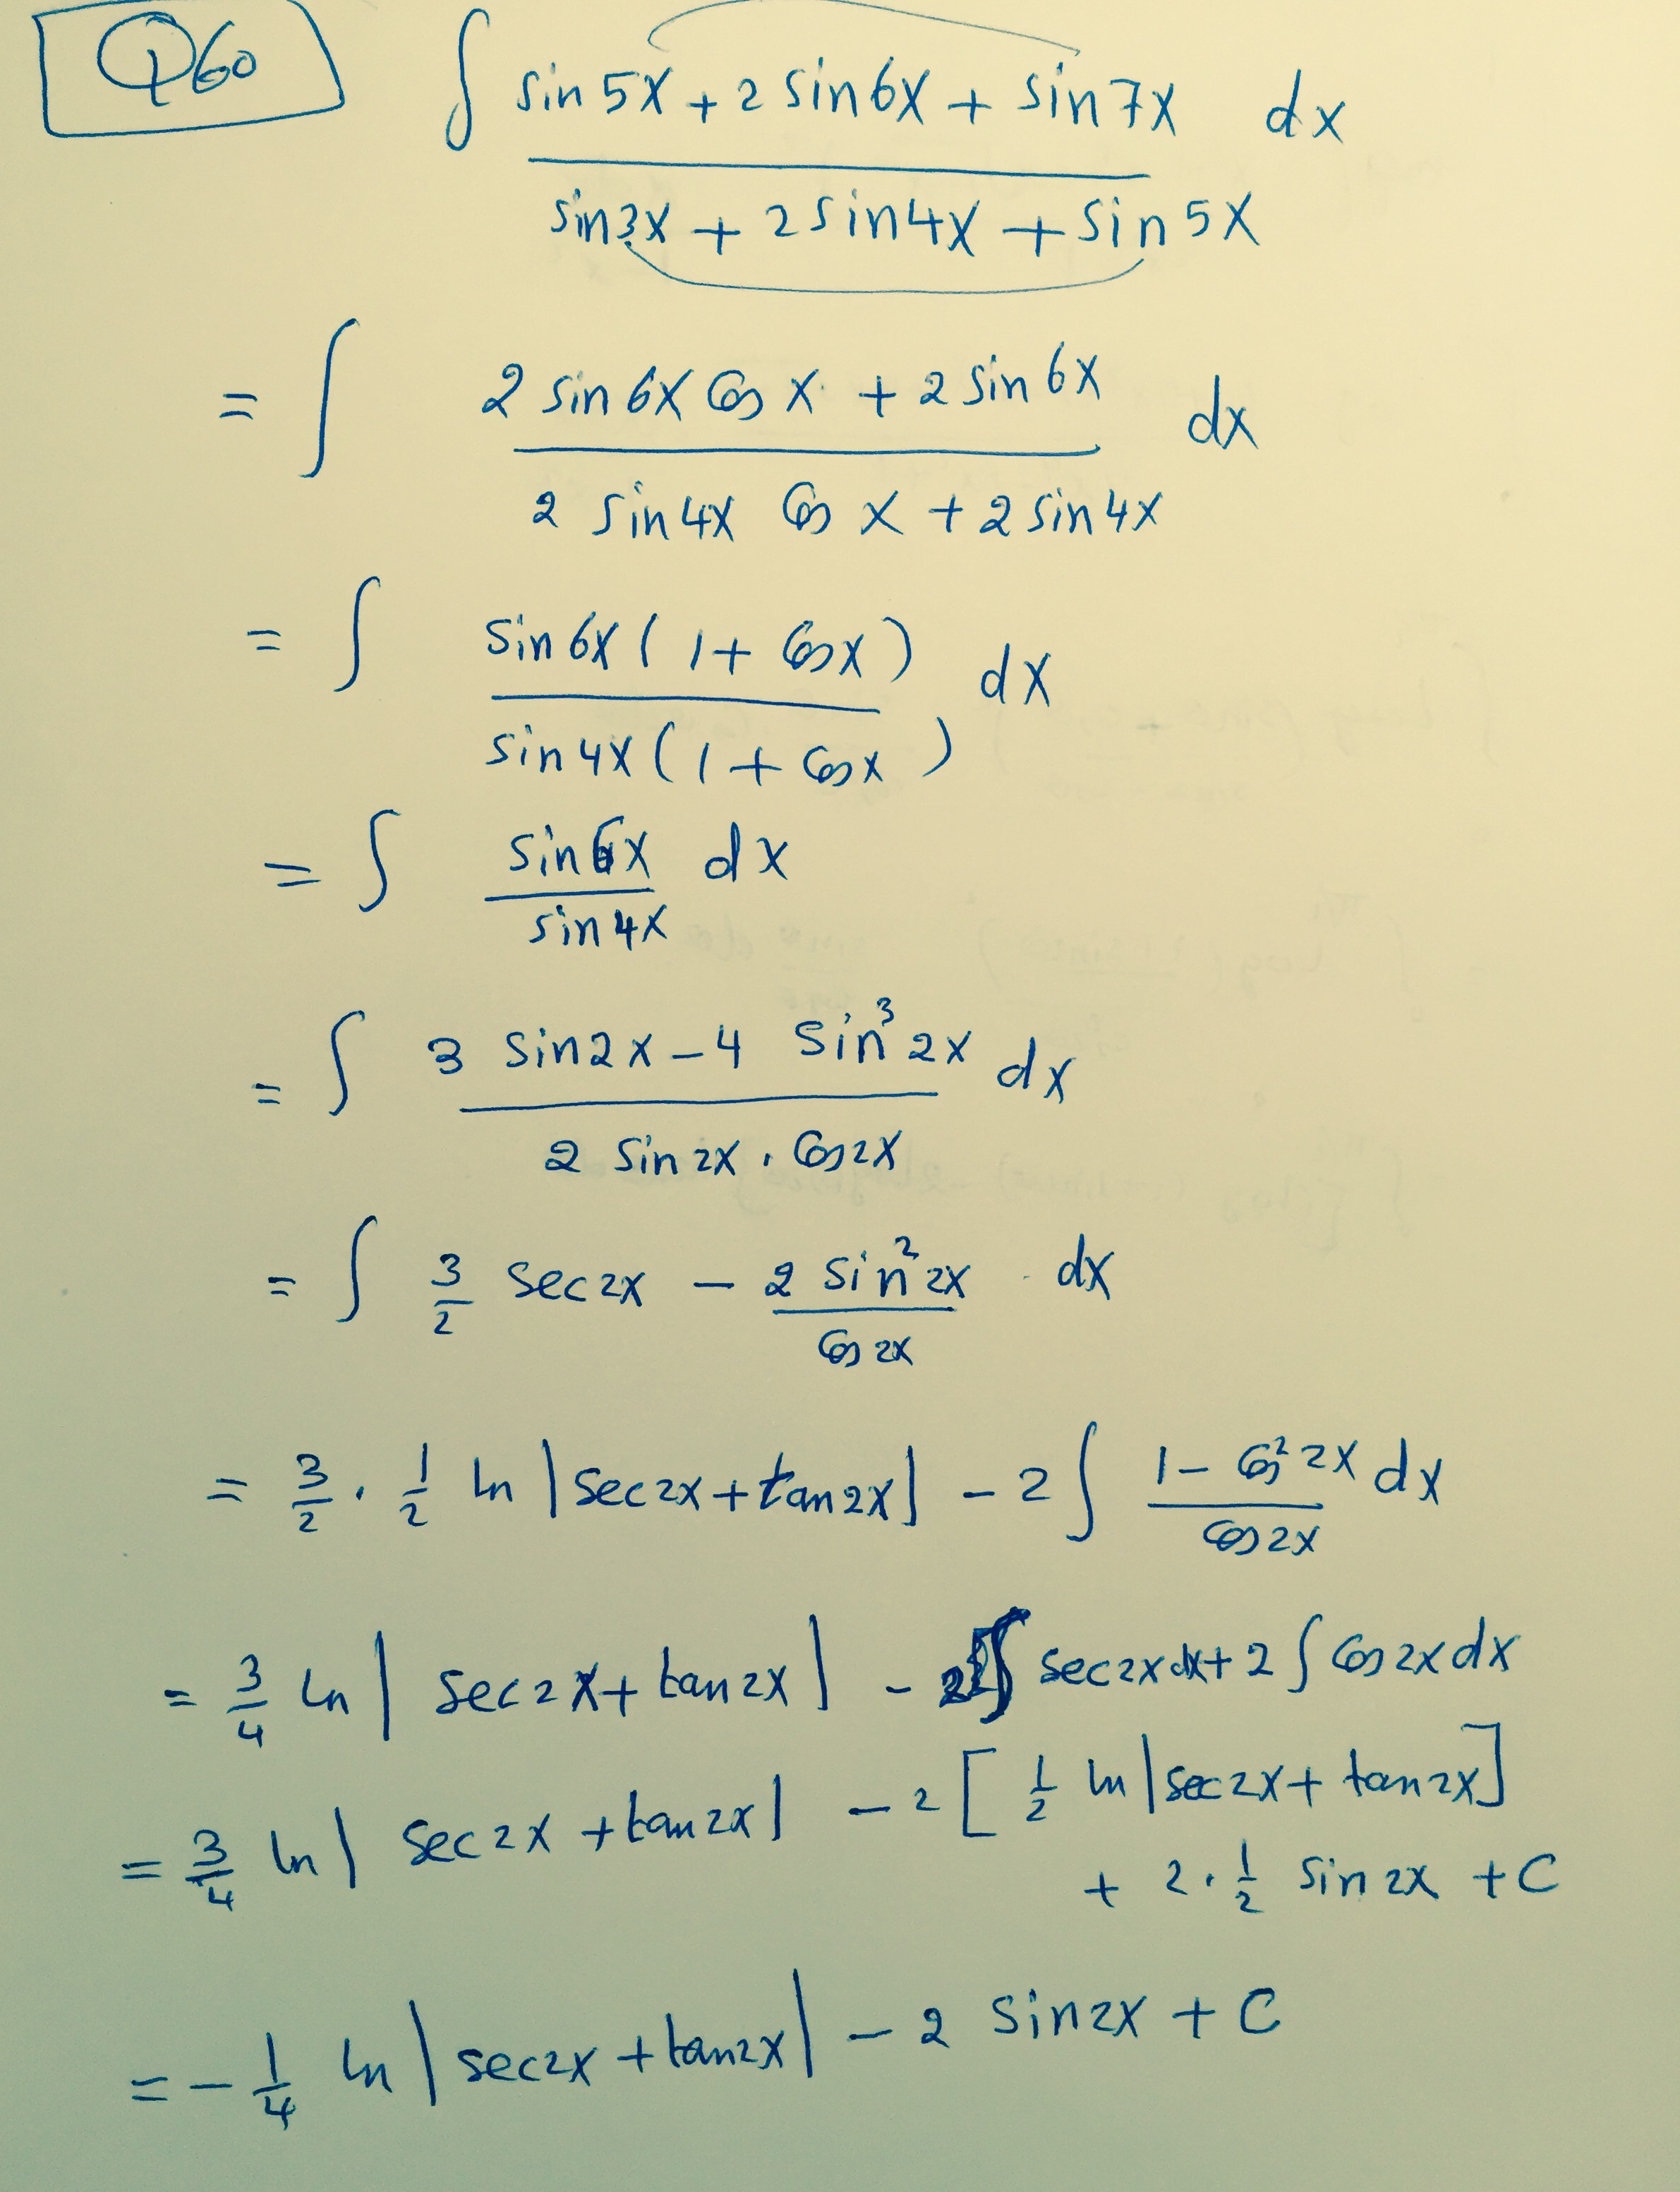 Q60
∫ (sin 5x + 2 sin 6x + sin 7x) / (sin 3x + 2 sin 4x + sin 5x) dx
= ∫ (2 sin 6x cos x + 2 sin 6x) / (2 sin 4x cos x + 2 sin 4x) dx
= ∫ sin 6x (1 + cos x) / sin 4x (1 + cos x) dx
= ∫ sin 6x / sin 4x dx
= ∫ (3 sin 2x - 4 sin³ 2x) / (2 sin 2x . cos 2x) dx
= ∫ 3/2 sec 2x - 2 sin² 2x / cos 2x dx
= 3/2 . 1/2 ln |sec 2x + tan 2x| - 2 ∫ (1 - cos² 2x) / cos 2x dx
= 3/4 ln | sec 2x + tan 2x | - 2 ∫ sec 2x dx + 2 ∫ cos 2x dx
= 3/4 ln | sec 2x + tan 2x | - 2 [ 1/2 ln | sec 2x + tan 2x ]
+ 2 . 1/2 sin 2x + C
= - 1/4 ln | sec 2x + tan 2x | - 2 sin 2x + C